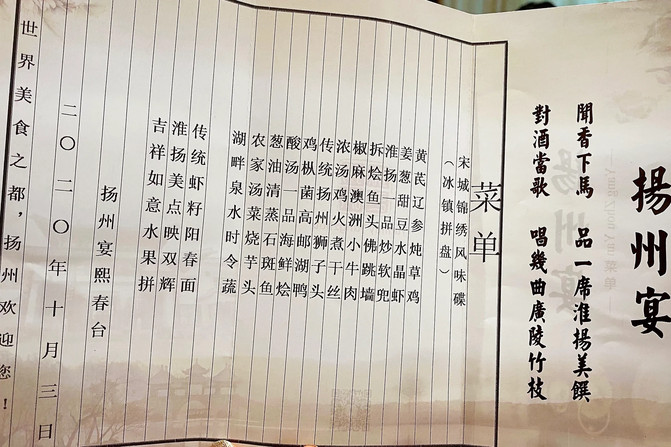 揚州宴
聞香下馬 品一席淮揚美饌
對酒當歌 唱幾曲廣陵竹枝
菜单
宋城锦绣风味碟
（冰镇拼盘）
黄芪辽参炖草鸡
姜葱甜豆水晶虾
淮扬一品炒软兜
拆烩鱼头佛跳墙
椒麻澳洲小牛肉
浓汤鸡火煮干丝
传统扬州狮子头
鸡枞菌高邮湖鸭
酸汤一品海鲜烩
葱油清蒸石斑鱼
农家汤菜烧芋头
湖畔泉水时令蔬
传统虾籽阳春面
淮扬美点映双辉
吉祥如意水果拼
扬州宴熙春台
二〇二〇年十月三日
世界美食之都，扬州欢迎您！